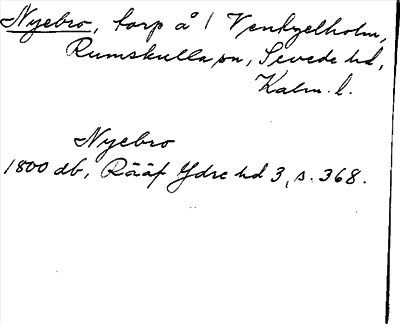 Nyebro, torp å 1 Venhyelholm,
Rumskulla sn, Sevede hd,
Kalm. l.
Nyebro
1800 db, Rääf Ydre hd 3, s. 368.